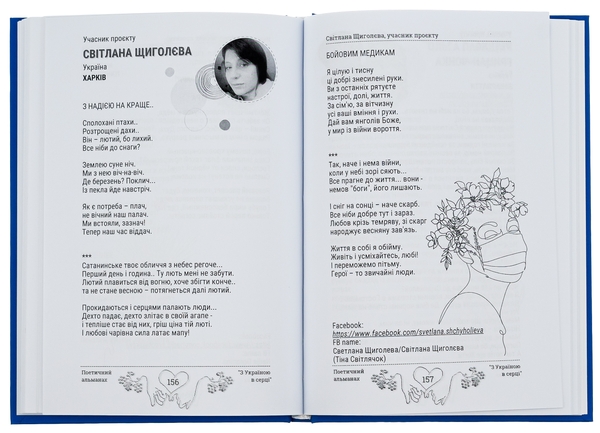 Учасник проєкту
СВІТЛАНА ЩИГОЛЄВА
Україна
ХАРКІВ
З НАДІЄЮ НА КРАЩЕ..
Сполохані птахи..
Розтрощені дахи..
Він – лютий, бо лихий.
Все ніби до снаги?
Землею суне ніч.
Ми з нею віч-на-віч.
Де березень? Поклич...
Із пекла йде навстріч.
Як є потреба – плач,
не вічний наш палач.
Ми встояли, зазнач!
Тепер наш час віддач.
***
Сатанинське твоє обличчя з небес регоче...
Перший день і година.. Ту лють мені не забути.
Лютий плавиться від вогню, хоче збігти конче..
та не стане весною – потягнеться далі лютий.
Прокидаються і серцями палають люди...
Дехто падає, дехто злітає в своїй агапе -
і тепліше стає від них, гріш ціна тій люті.
І любові чарівна сила латає мапу!
Поетичний
альманах
156
"З Україною
в серці"
Світлана Щиголєва, учасник проєкту
БОЙОВИМ МЕДИКАМ
Я цілую і тисну
ці добрі знесилені руки.
Ви з останніх рятуєте
настрої, долі, життя.
За сім'ю, за вітчизну
усі ваші вміння і рухи.
Дай вам янголів Боже,
у мир із війни вороття.
***
Так, наче і нема війни,
коли у небі зорі сяють...
Все прагне до життя... вони -
немов "боги", його лишають.
І сніг на сонці – наче скарб.
Все ніби добре тут і зараз.
Любов крізь темряву, зі скарг
народжує весняну зав'язь.
Життя в собі я обійму.
Живіть і усміхайтесь, любі!
І переможемо пітьму.
Герої – то звичайні люди.
Facebook:
https://www.facebook.com/svetlana.shchyholieva
FB name:
Светлана Щиголева/Світлана Щиголєва
(Тіна Світлячок)
Поетичний
альманах
157
"З Україною
в серці"